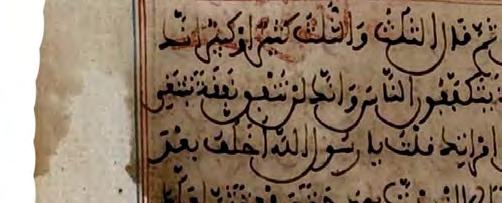 ثم قال الثلث والثلث كثير او كبير انك
يتكففون الناس وانك لن تنفق نفقة تبتغي
امرأتك قلت يا رسول الله اخلف بعد